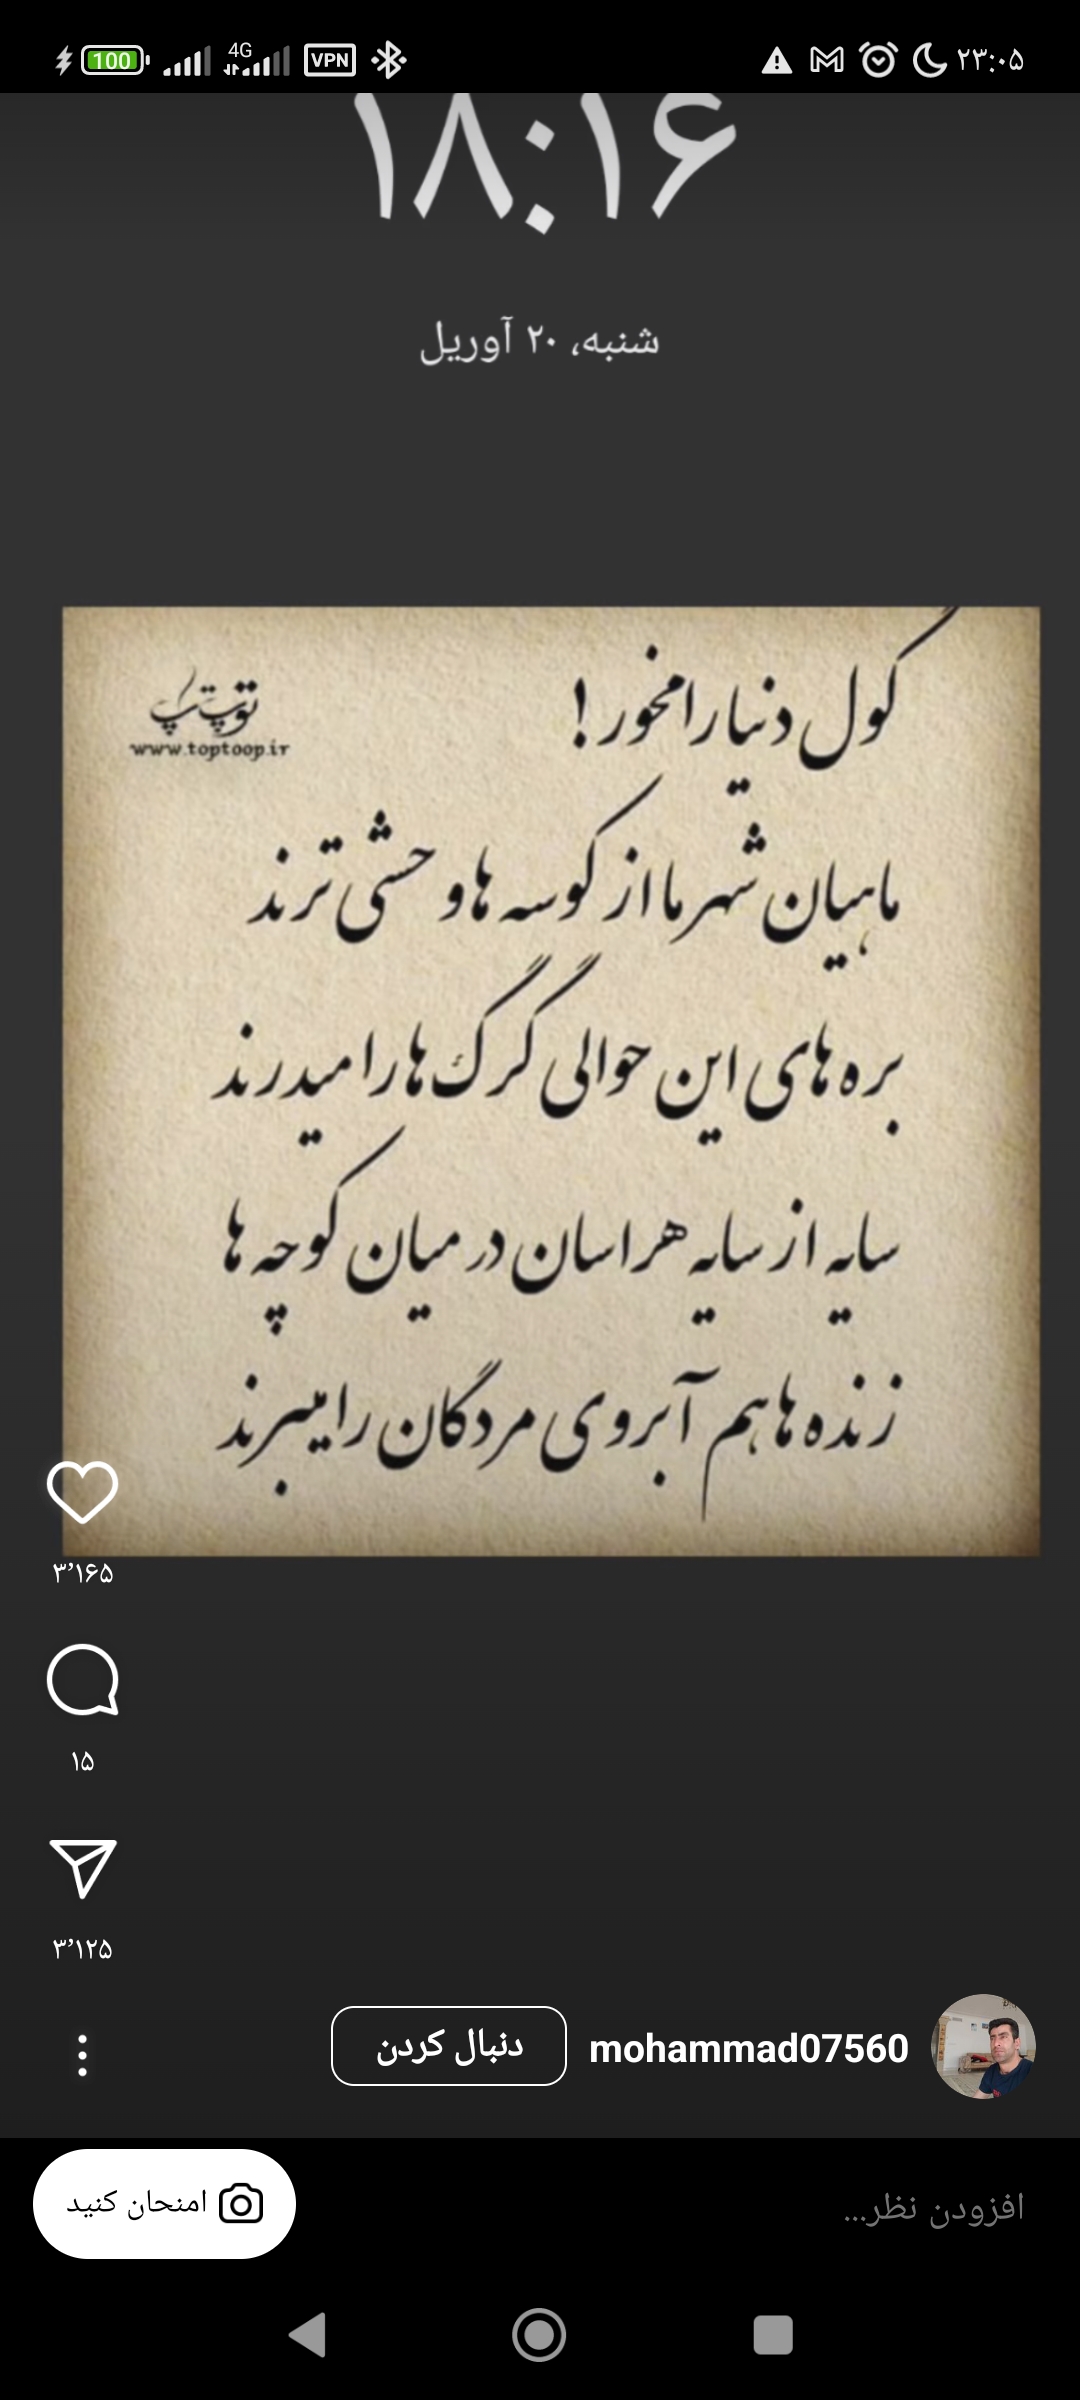 100 4G VPN ۲۳:۰۵
۱۸:۱۶
شنبه، ۲۰ آوریل
گول دنیا را مخور !
توپ تاپ
www.toptoop.ir
ماهیان شهر ما از کوسه ها وحشی ترند
بره های این حوالی گرگ ها را میدرند
سایه از سایه هراسان در میان کوچه ها
زنده ها هم آبروی مردگان را میبرند
۳٬۱۶۵
۱۵
۳٬۱۲۵
mohammad07560 دنبال کردن
افزودن نظر...
امتحان کنید